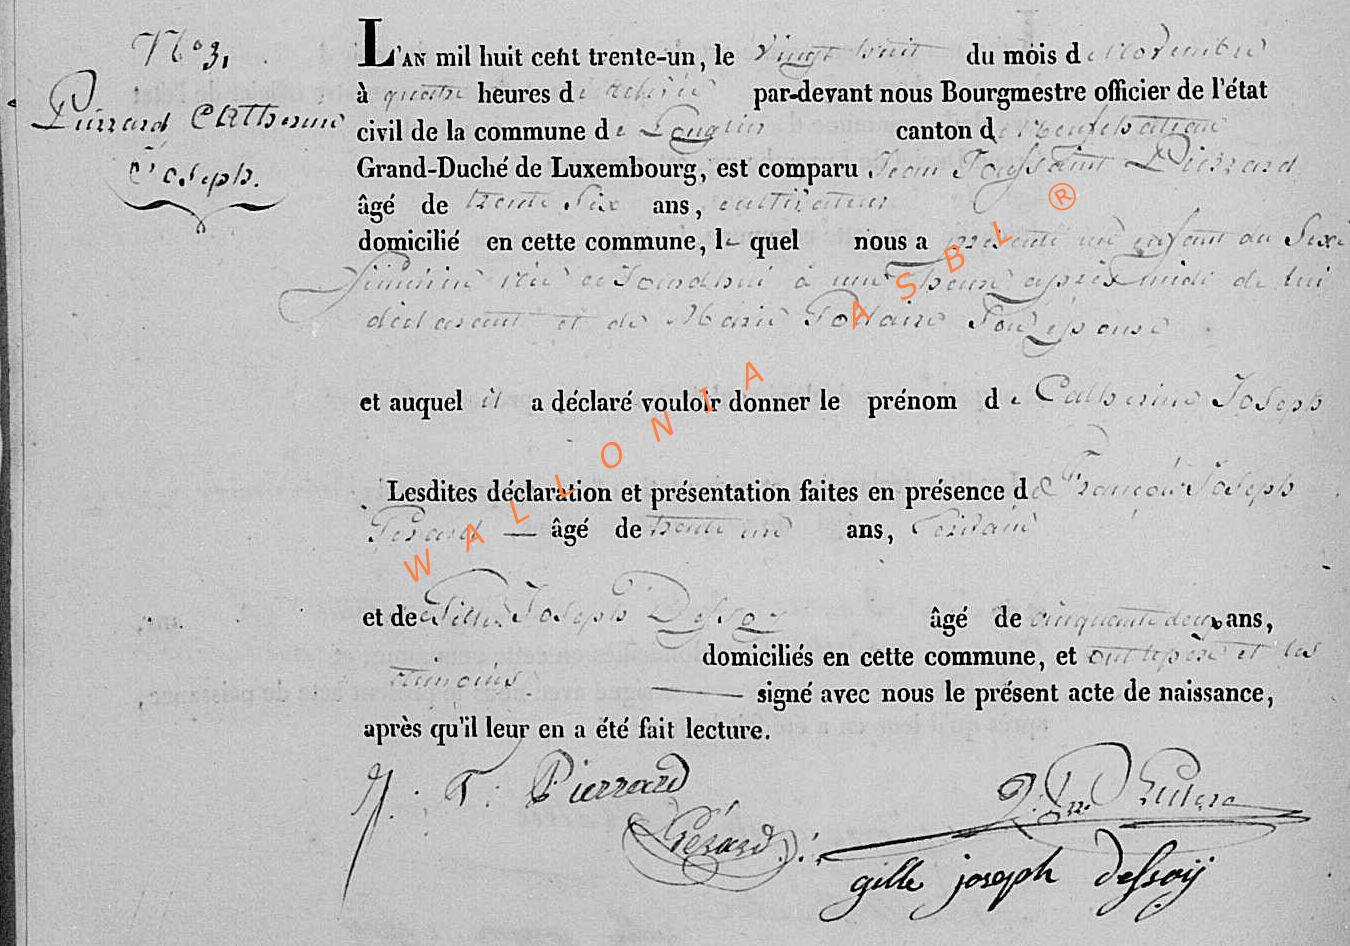 N° 31
Pierrard Catherine
Joseph.
L'AN mil huit cent trente-un, le vingt huit du mois de Novembre
à quatre heures de relevée par-devant nous Bourgmestre officier de l'état
civil de la commune de Longlier canton de Neufchateau
Grand-Duché de Luxembourg, est comparu Jean Toussaint Pierrard
âgé de trente Six ans, cultivateur
domicilié en cette commune, le quel nous a présenté un enfant du Sexe
féminin née aujourdhui à une heure après midi de lui
déclarant et de Marie Son épouse
et auquel il a déclaré vouloir donner le prénom de Catherine Joseph
Lesdites déclaration et présentation faites en présence de François Joseph
Gérard — âgé de trente un ans,
et de Gille Joseph Dessoy âgé de cinquante deux ans,
domiciliés en cette commune, et ont le père et les
témoins — signé avec nous le présent acte de naissance,
après qu'il leur en a été fait lecture.
J. T. Pierrard
Gérard
gille joseph dessoÿ
WALLONIA ASBL ®